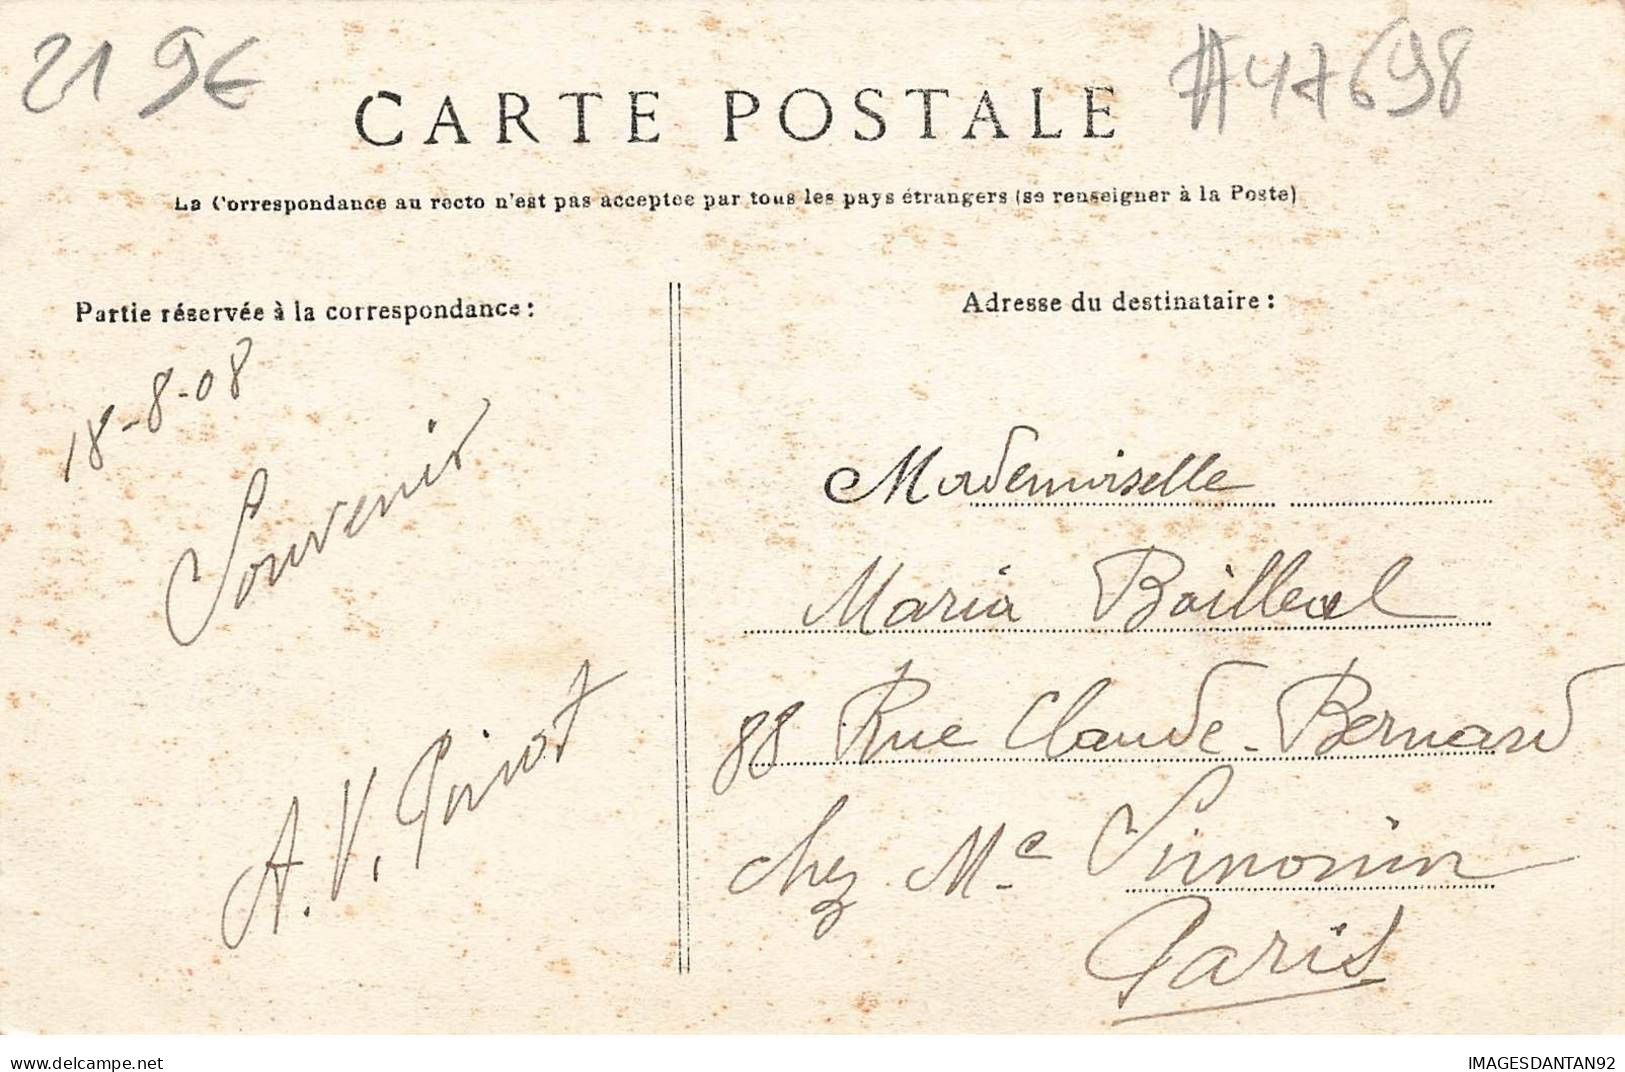 21 9€
#47698
CARTE POSTALE
La Correspondance au recto n'est pas acceptée par tous les pays étrangers (se renseigner à la Poste)
Partie réservée à la correspondance :
18-8-08
Souvenir
A. V. Poinot
Adresse du destinataire :
Mademoiselle
Maria
88 Rue Claude-Bernard
chez Me Simonin
Paris
www.delcampe.net
IMAGESDANTAN92